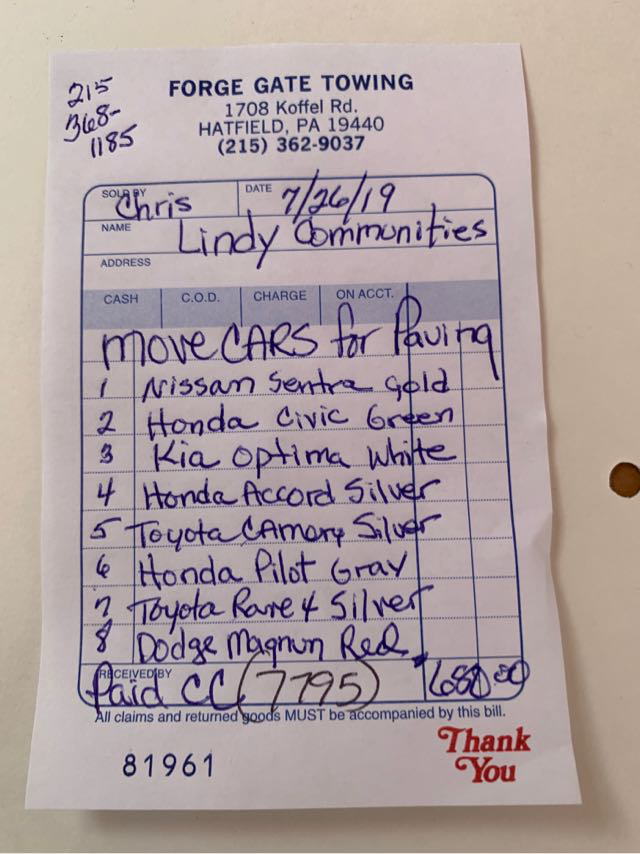 FORGE GATE TOWING
1708 Koffel Rd.
HATFIELD, PA 19440
(215) 362-9037
215
368-
1185
SOLD BY Chris DATE 7/26/19
NAME Lindy Communities
ADDRESS
CASH C.O.D. CHARGE ON ACCT.
Move CARS for Paving
1 Nissan Sentra Gold
2 Honda Civic Green
3 Kia Optima White
4 Honda Accord Silver
5 Toyota CAmory Silver
6 Honda Pilot Gray
7 Toyota Rave 4 Silver
8 Dodge Magnun Red
RECEIVED BY
Paid CC (7795) 680.00
All claims and returned goods MUST be accompanied by this bill.
81961
Thank
You